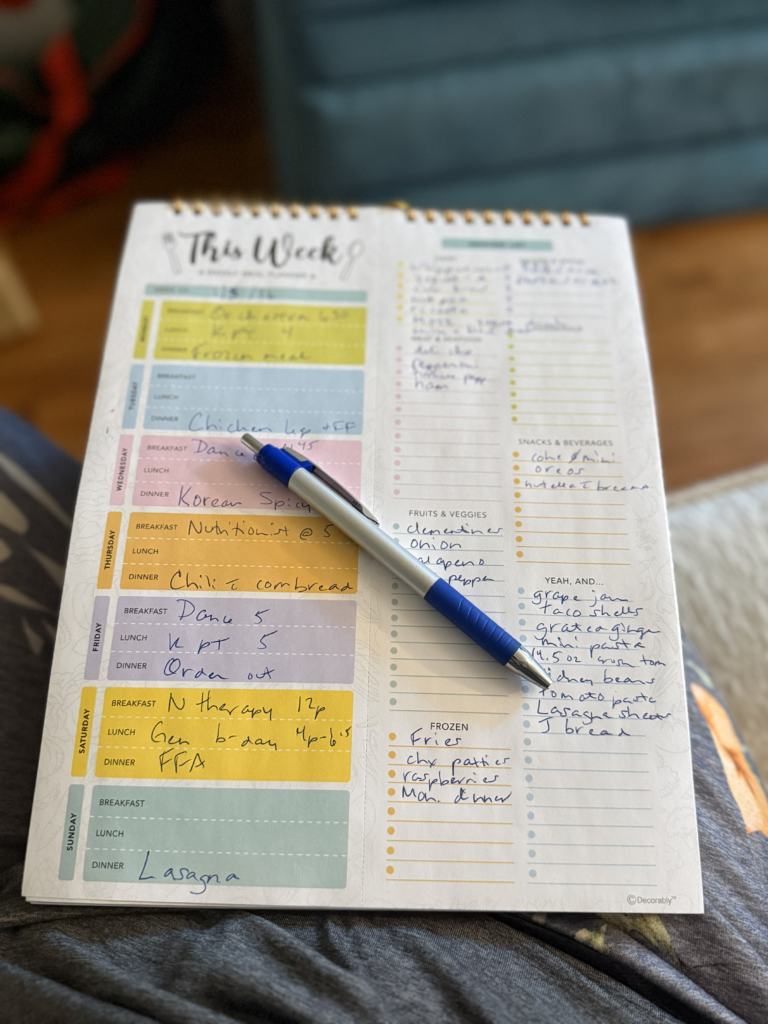 This Week
A WEEKLY MEAL PLANNER
MONDAY
BREAKFAST Orchestra 630
LUNCH K PT 4
DINNER Frozen meal
TUESDAY
BREAKFAST
LUNCH
DINNER Chicken
WEDNESDAY
BREAKFAST Dance 445
LUNCH
DINNER Korean Spicy
THURSDAY
BREAKFAST Nutritionist @ 5
LUNCH
DINNER Chili c cornbread
FRIDAY
BREAKFAST Dance 5
LUNCH K PT 5
DINNER Order out
SATURDAY
BREAKFAST N therapy 12p
LUNCH Gen b-day 4p-6
DINNER FFA
SUNDAY
BREAKFAST
LUNCH
DINNER Lasagna
GROCERY LIST
ricotta
MEAT & SEAFOOD
deli chx
pepperoni
ham
FRUITS & VEGGIES
clementines
onion
jalapeno
pepper
FROZEN
Fries
chx patties
raspberries
Mon. dinner
SNACKS & BEVERAGES
coke mini
oreos
nutella
YEAH, AND...
grape jam
taco shells
grated ginger
mini pasta
14.5 oz crush tom
kidney beans
tomato paste
Lasagna sheets
J bread
©Decorably™